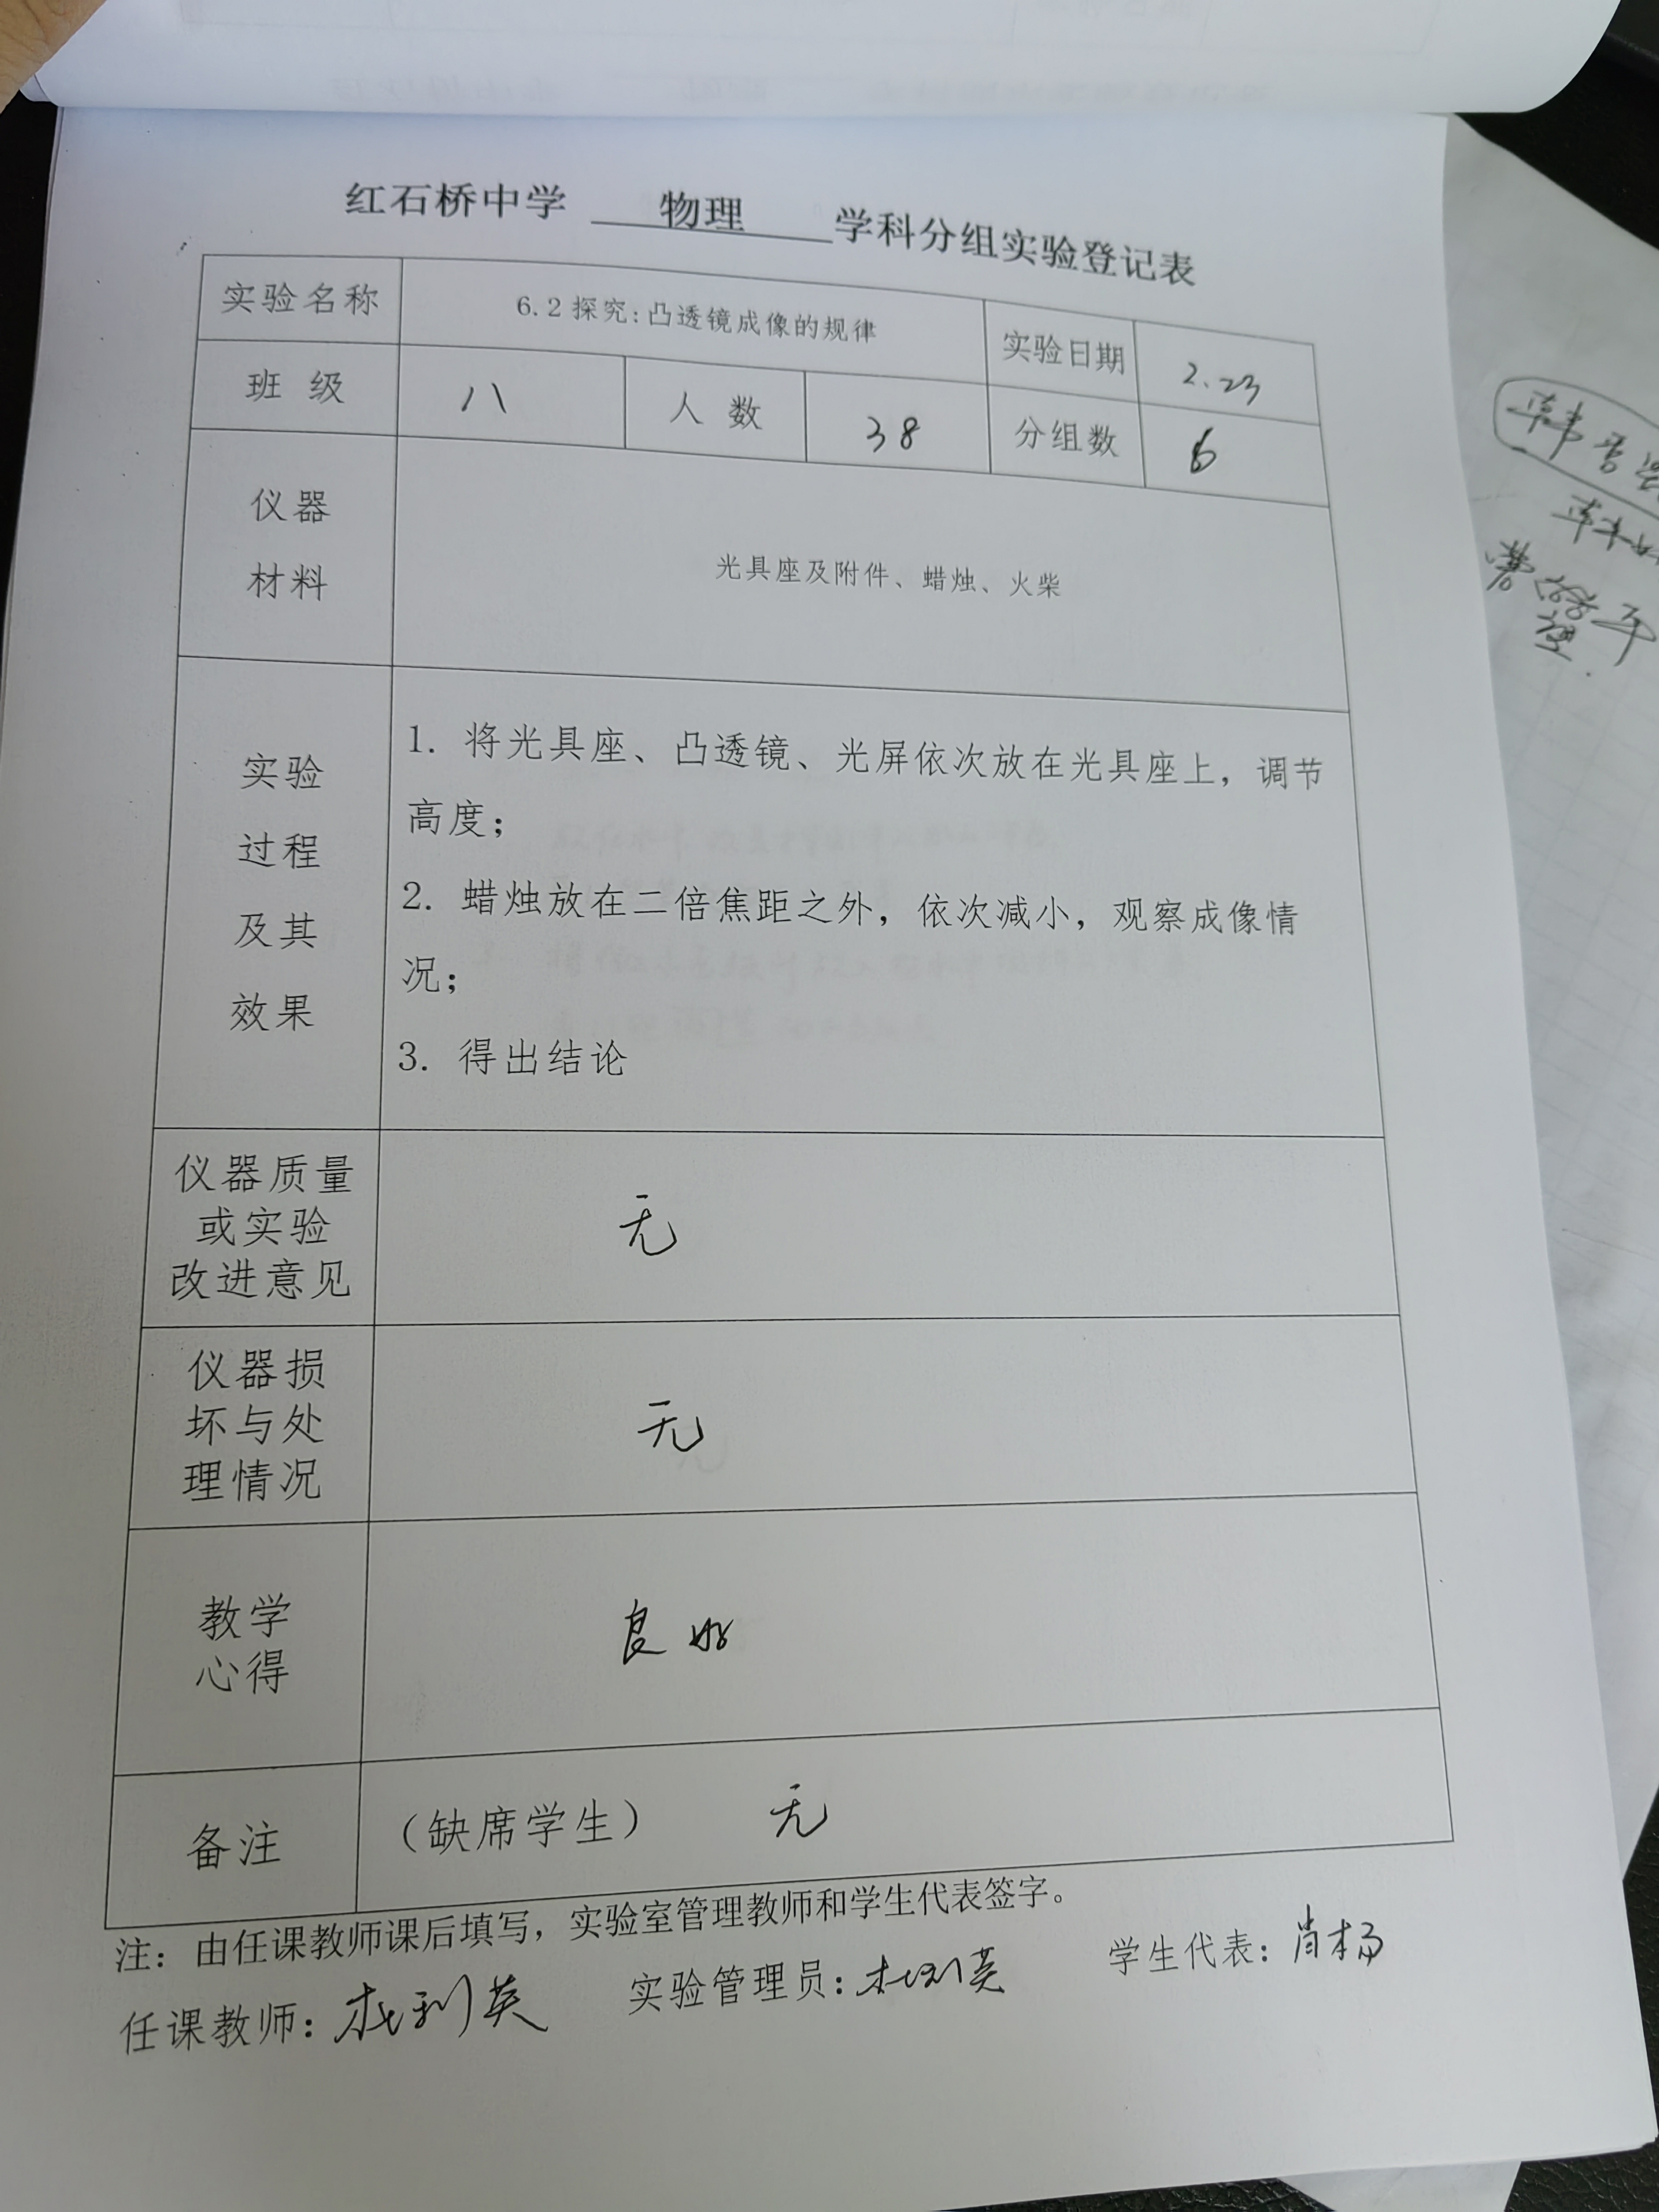 红石桥中学 物理 学科分组实验登记表
实验名称 6.2探究:凸透镜成像的规律 实验日期 2.23
班 级 八 人 数 38 分组数 6
仪器
材料
光具座及附件、蜡烛、火柴
实验
过程
及其
效果
1. 将光具座、凸透镜、光屏依次放在光具座上，调节
高度；
2. 蜡烛放在二倍焦距之外，依次减小，观察成像情
况；
3. 得出结论
仪器质量
或实验
改进意见
无
仪器损
坏与处
理情况
无
教学
心得
良好
备注 （缺席学生） 无
注：由任课教师课后填写，实验室管理教师和学生代表签字。
任课教师：杜利英 实验管理员：杜利英 学生代表：肖杨